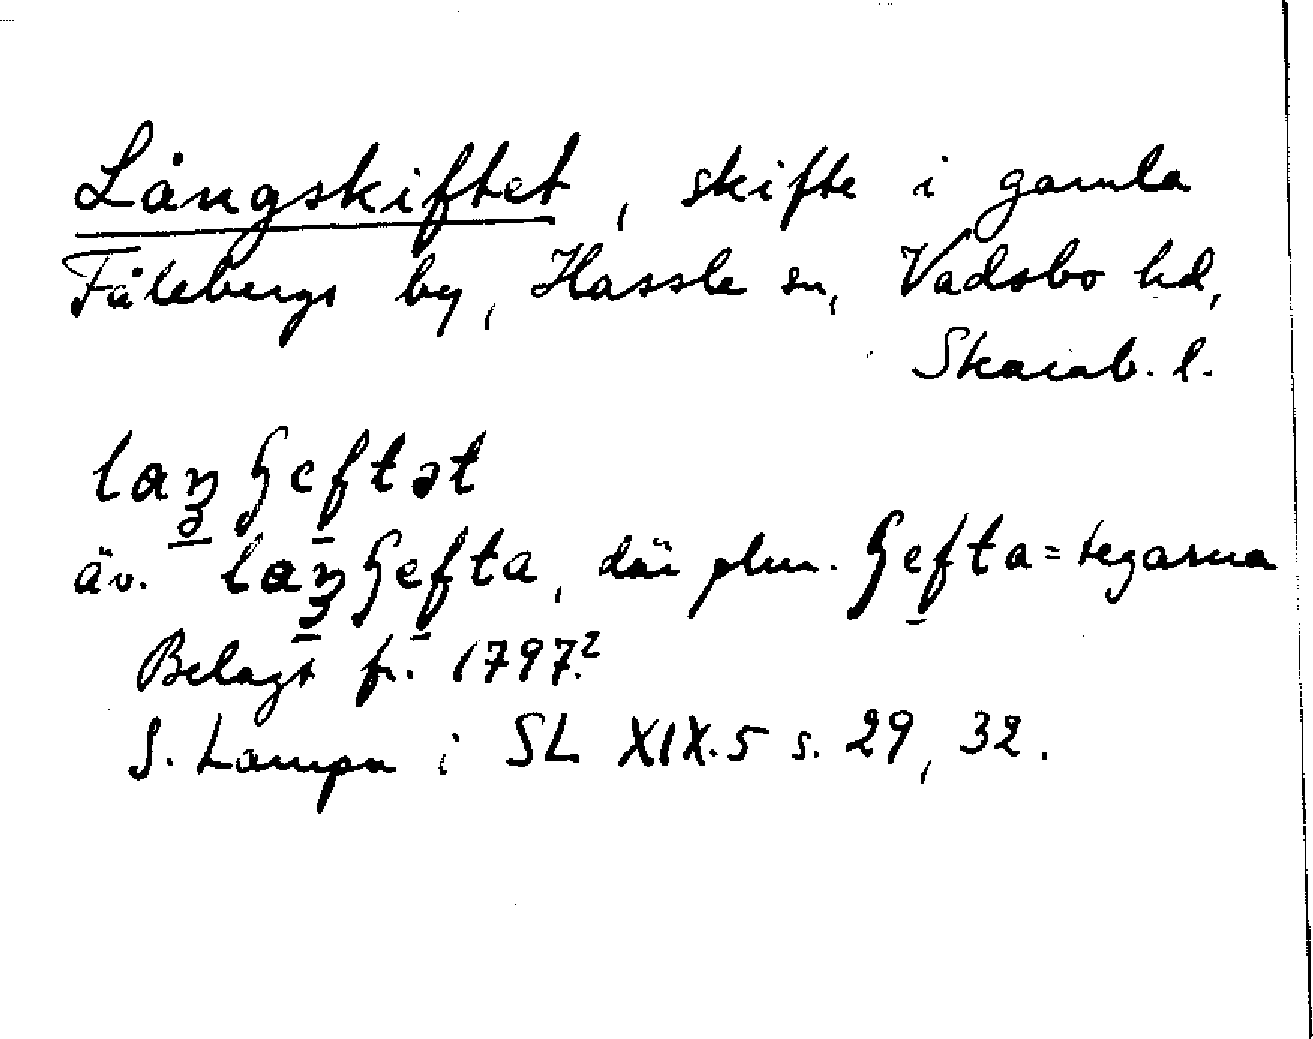 Långskiftet, skifte i gamla
Fålebergs by, Hassle sn, Vadsbo hd,
Skarab. l.
laŋʃeftət
äv. laŋʃefta, där plur. ʃefta = tegarna
Belagt fr. 1797.²
S. Lampa i SL XIX.5 s. 29, 32.